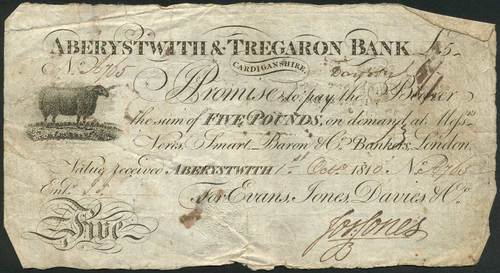 ABERYSTWITH & TREGARON BANK £5
CARDIGANSHIRE.
No. A765
I Promise to pay the Bearer
the sum of FIVE POUNDS, on demand, at Messrs
Veres, Smart, Baron & Co. Bankers, London.
Value received ABERYSTWITH 1st Octr 1810 No. A765
Entd
For Evans, Jones, Davies & Co.
Five
Jos Jones